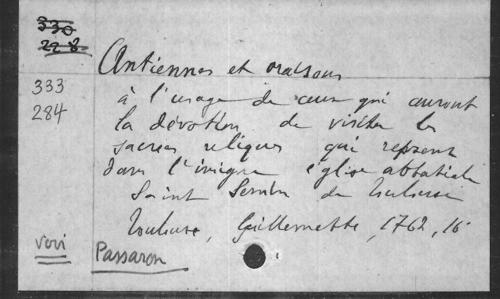 330
22 8
333
284
Antiennes et oraisons
à l'usage de ceux qui auront
la dévotion de visiter les
sacrées reliques qui reposent
dans l'insigne église abbatiale
Saint Sernin de Toulouse
Toulouse, Guillemette, 1762, 16°
vovi
Passaron